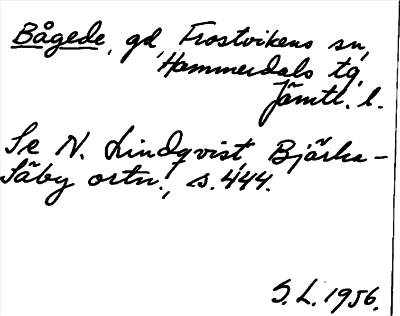 Bågede, gd, Frostvikens sn,
Hammerdals tg,
Jämtl. l.
Se N. Lindqvist, Bjärka-
Säby ortn., s. 444.
S.L. 1956.